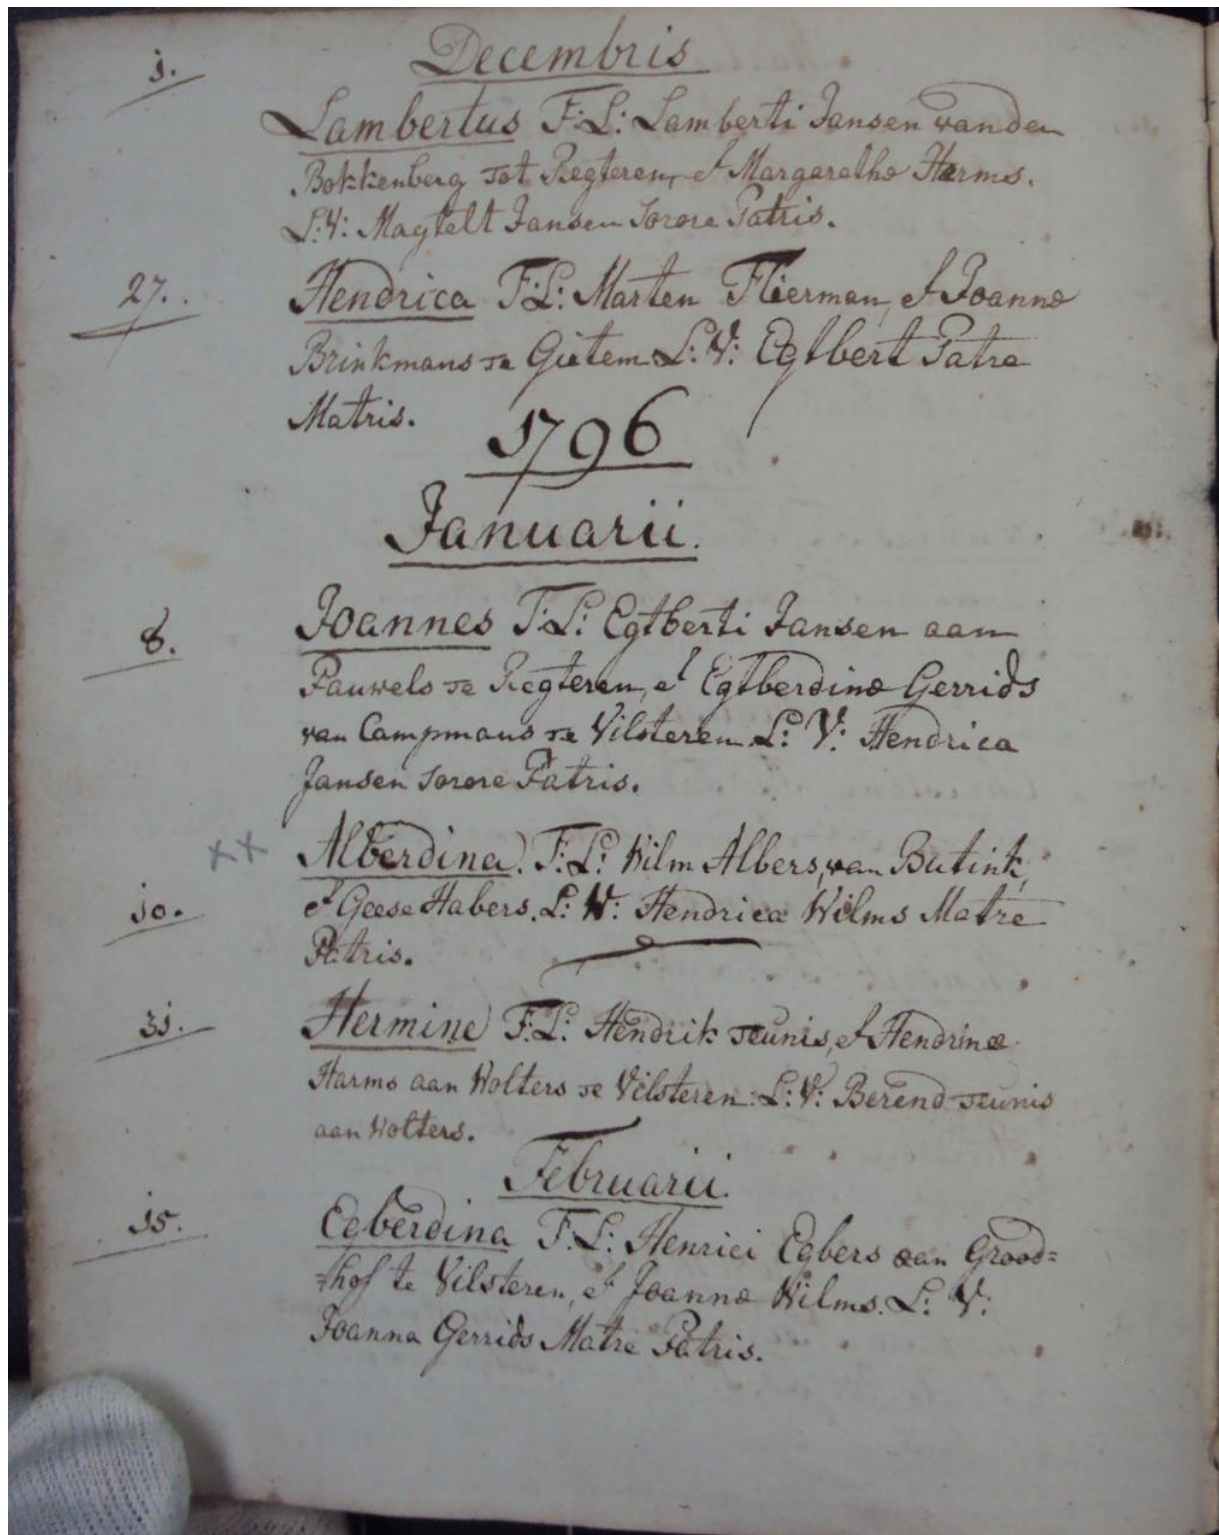 Decembris
1. Lambertus F: L: Lamberti Jansen vanden
Bokkenberg tot Regteren, et Margarethæ Harms.
L: V: Magtelt Jansen Sorore Patris.
27. Hendrica F: L: Marten Flierman, et Joannæ
Brinkmans te Gietem L: V: Egtbert Patre
Matris.
1796
Januarii.
8. Joannes F: L: Egtberti Jansen aan
Pauwels te Regteren, et Egtberdinæ Gerrids
van Campmans te Vilsteren L: V: Hendrica
Jansen Sorore Patris.
xx Alberdina. F: L: Wilm Albers, van Butink,
10. et Geese Habers. L: V: Hendrica Wilms Matre
Patris.
31. Hermine F: L: Hendrik Teunis, et Hendrinæ
Harms aan Wolters te Vilsteren: L: V: Berend Teunis
aan Wolters.
Februarii.
15. Egberdina F: L: Henrici Egbers aan Grood=
=hof te Vilsteren, et Joannæ Wilms. L: V:
Joanna Gerrids Matre Patris.